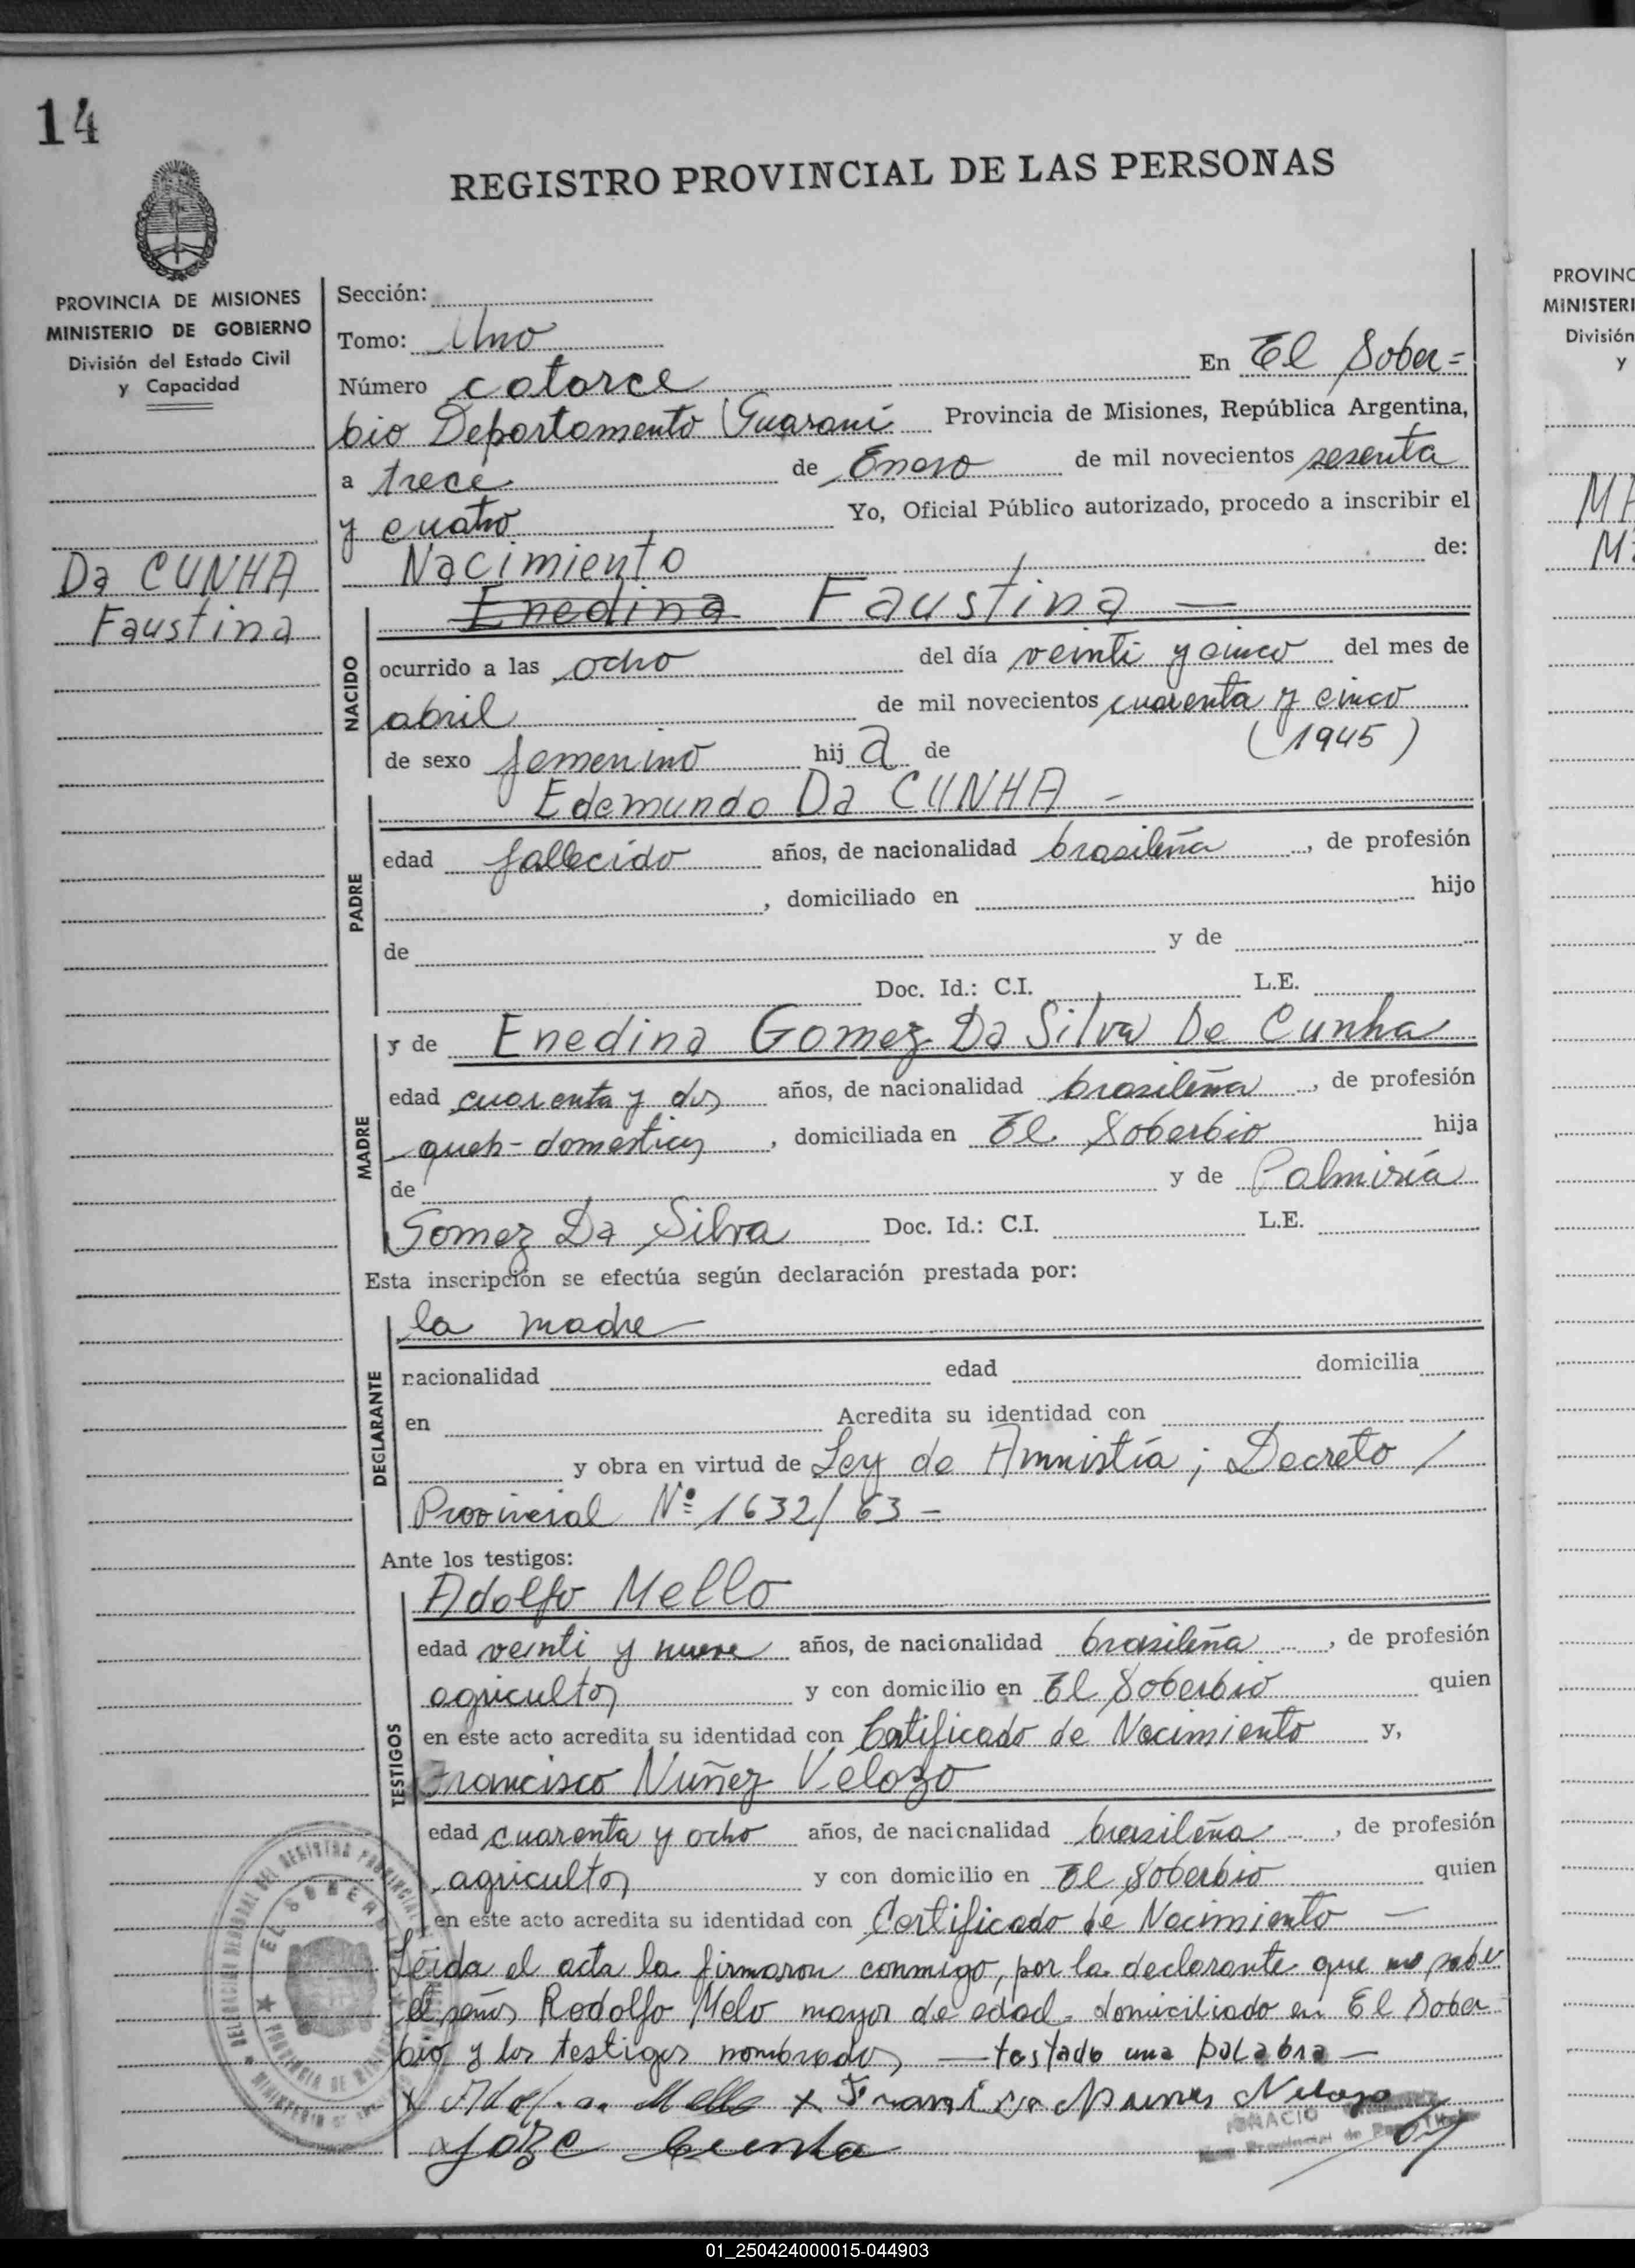 14
REGISTRO PROVINCIAL DE LAS PERSONAS
PROVINCIA DE MISIONES
MINISTERIO DE GOBIERNO
División del Estado Civil
y Capacidad
Da CUNHA
Faustina
Sección:
Tomo: Uno
Número catorce En El Sober=
bio Departamento Guaraní Provincia de Misiones, República Argentina,
a trece de Enero de mil novecientos sesenta
y cuatro Yo, Oficial Público autorizado, procedo a inscribir el
Nacimiento de:
NACIDO
Enedina Faustina —
ocurrido a las ocho del día veinti y cinco del mes de
abril de mil novecientos cuarenta y cinco
(1945)
de sexo femenino hij a de
PADRE
Edemundo Da CUNHA -
edad fallecido años, de nacionalidad brasileña, de profesión
, domiciliado en hijo
de y de
Doc. Id.: C.I. L.E.
MADRE
y de Enedina Gomez Da Silva De Cunha
edad cuarenta y dos años, de nacionalidad brasileña, de profesión
queh-domesticos, domiciliada en El Soberbio hija
de y de Palmiría
Gomez Da Silva Doc. Id.: C.I. L.E.
Esta inscripción se efectúa según declaración prestada por:
DEGLARANTE
la madre
nacionalidad edad domicilia
en Acredita su identidad con
y obra en virtud de Ley de Amnistía; Decreto /
Provincial Nº 1632/63 -
Ante los testigos:
TESTIGOS
Adolfo Mello
edad veinti y nueve años, de nacionalidad brasileña, de profesión
agricultor y con domicilio en El Soberbio quien
en este acto acredita su identidad con Certificado de Nacimiento y,
Francisco Nuñez Velozo
edad cuarenta y ocho años, de nacionalidad brasileña, de profesión
agricultor y con domicilio en El Soberbio quien
en este acto acredita su identidad con Certificado de Nacimiento —
Leida el acta la firmaron conmigo, por la declarante que no sabe
el señor Rodolfo Melo mayor de edad domiciliado en El Sober
bio y los testigos nombrados — testado una palabra —
x Mello x Nunes
Joze Cunha
IGNACIO
EL SOBERBIO
PROVINC
MINISTERI
División
y
01_250424000015-044903